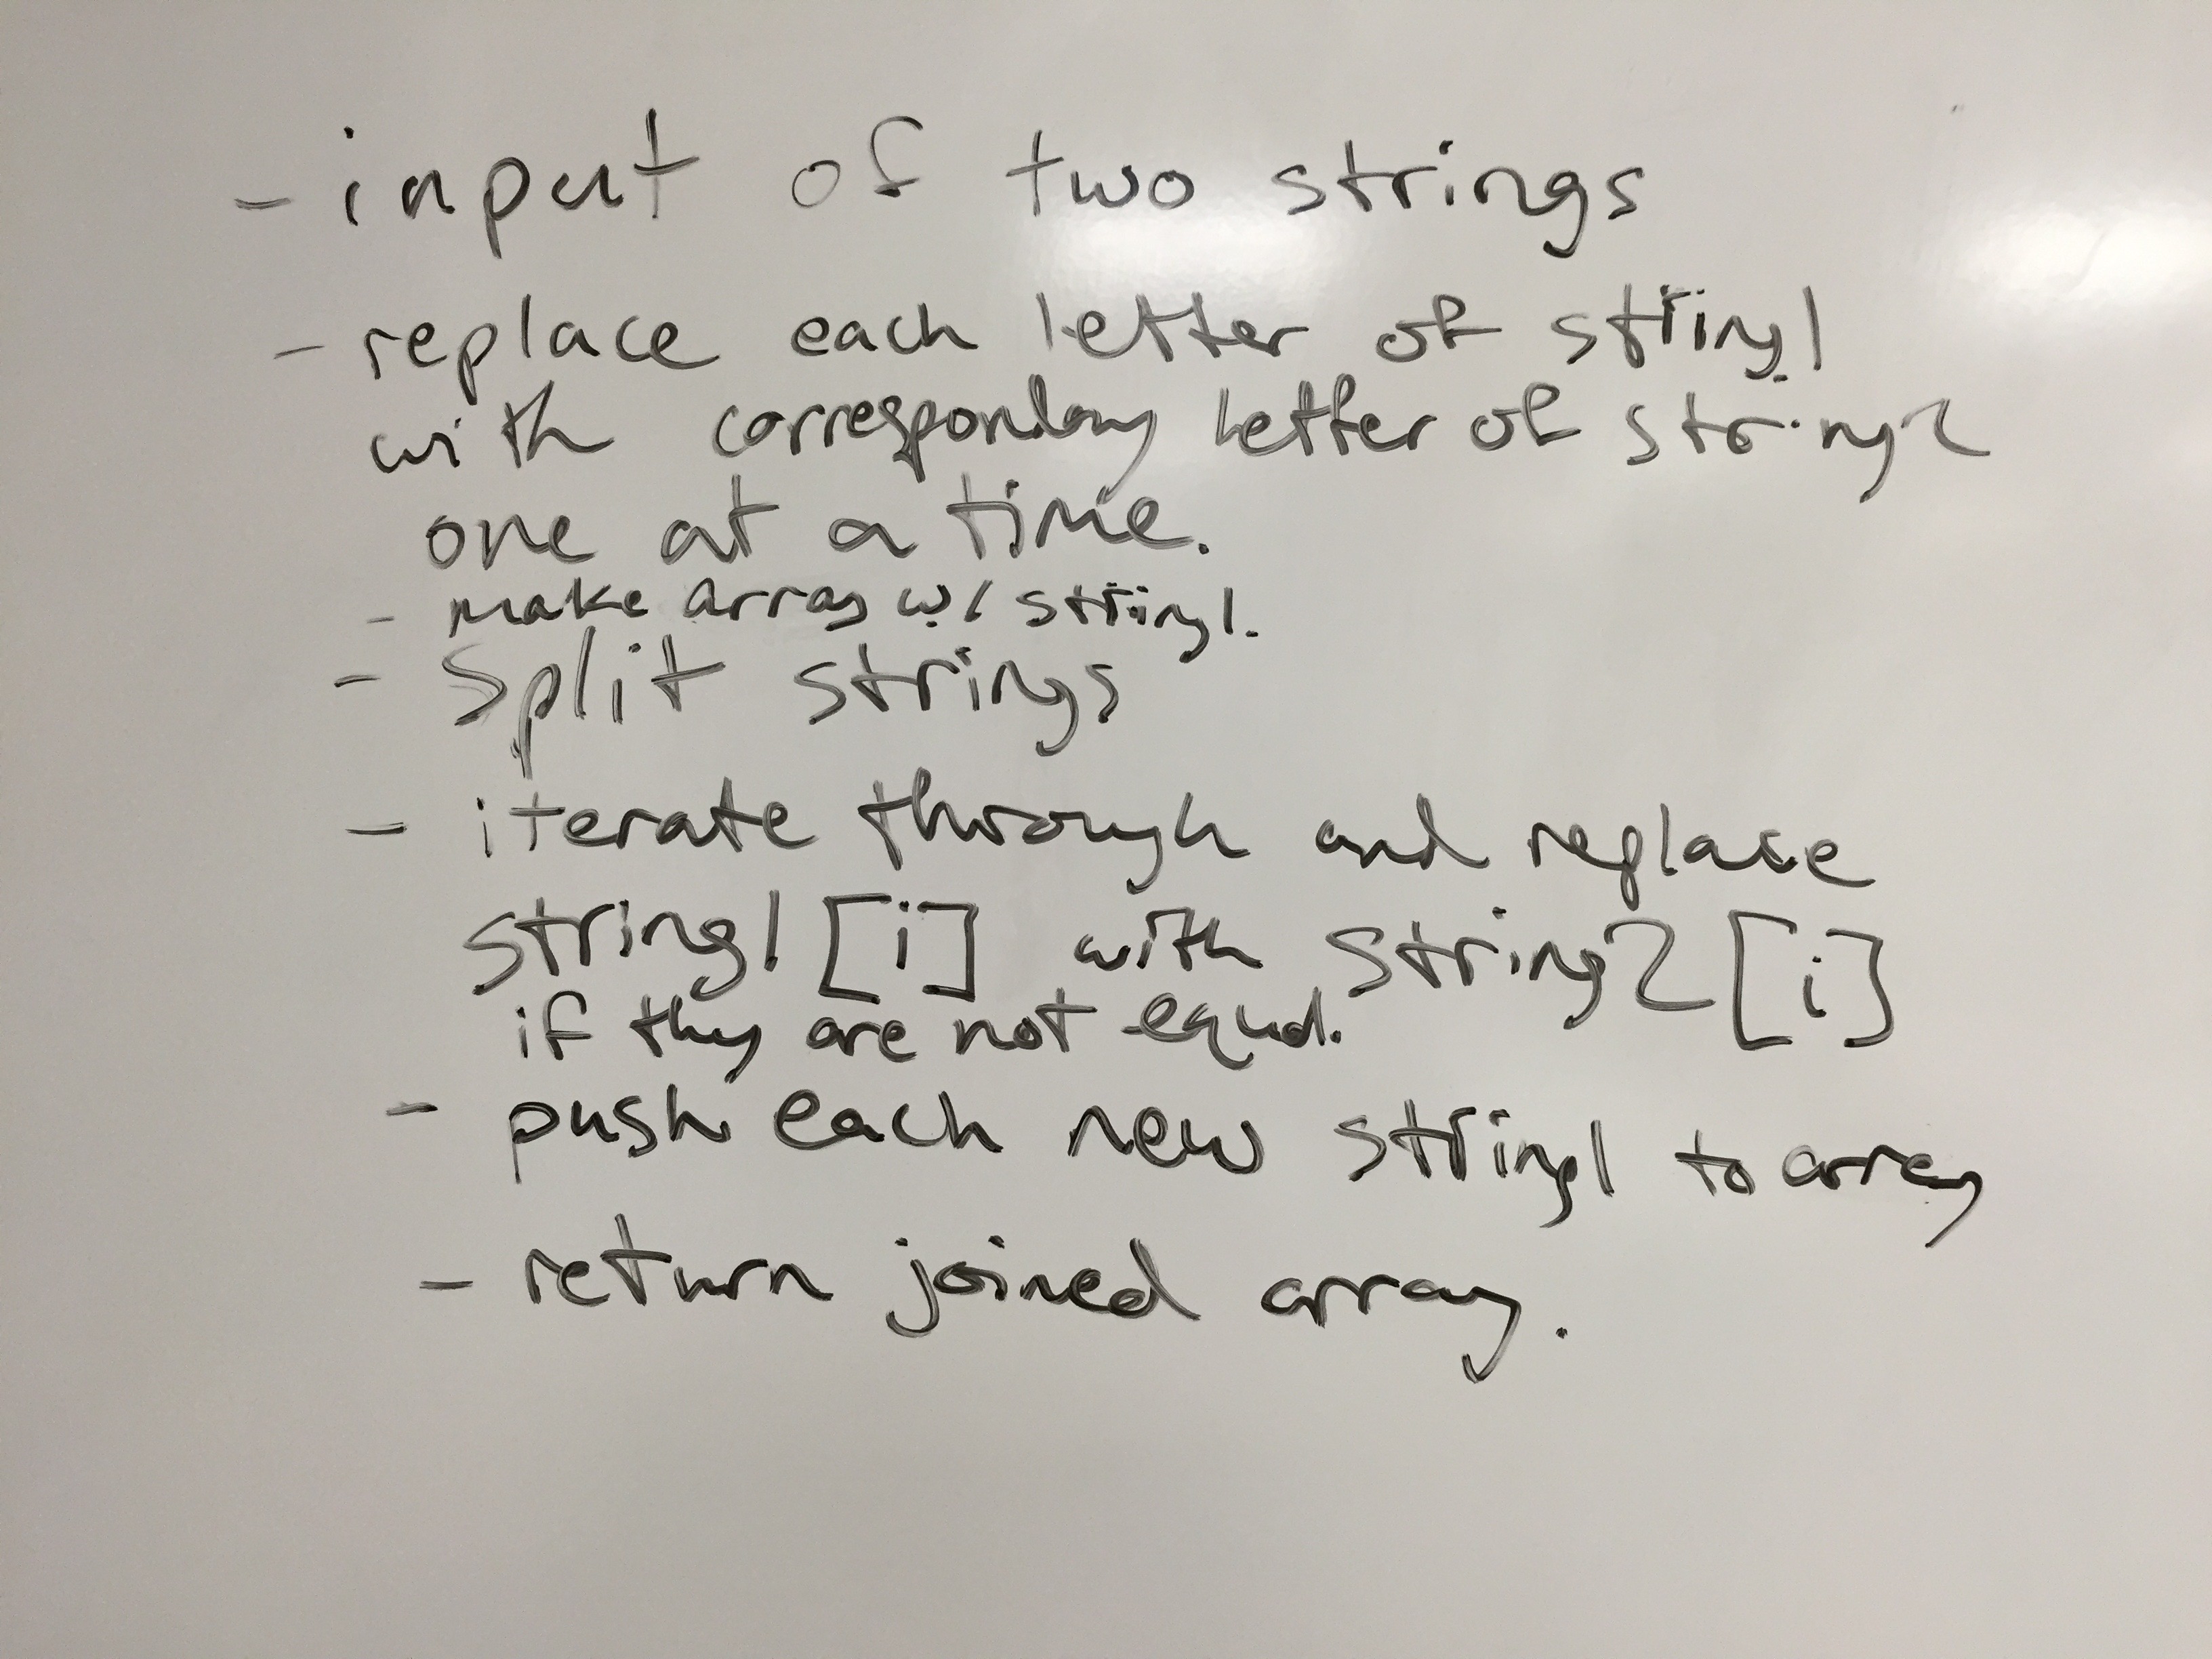 - input of two strings
- replace each letter of string1
with corresponding letter of string2
one at a time.
- make array w/ string1.
- Split strings
- iterate through and replace
string1[i] with string2[i]
if they are not equal.
- push each new string1 to array
- return joined array.